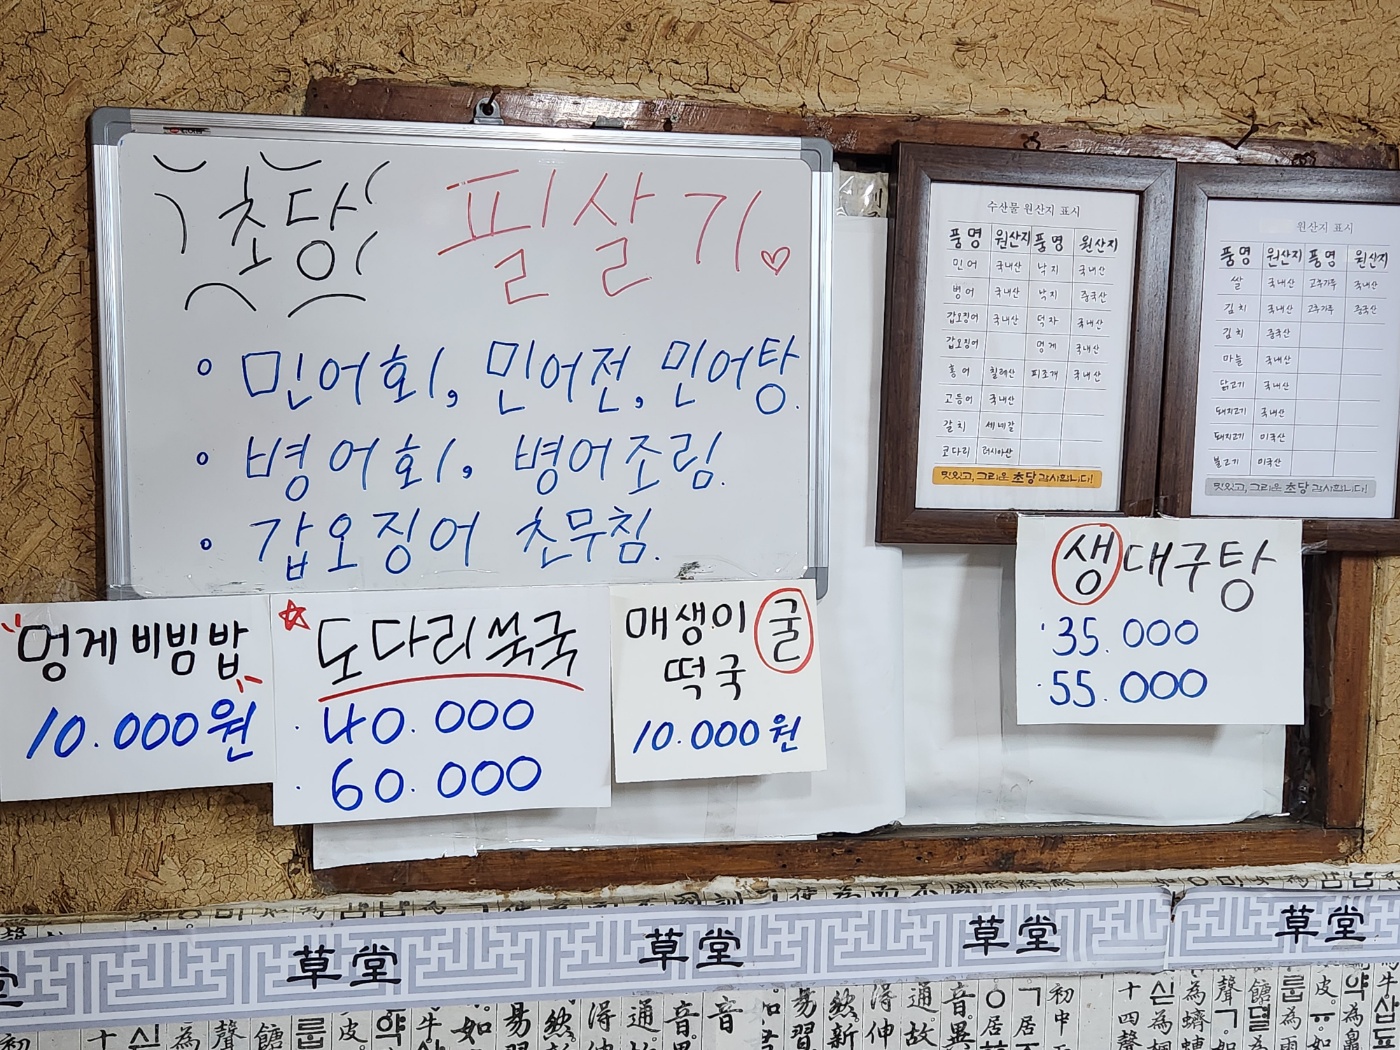 초당 필살기
민어회, 민어전, 민어탕.
병어회, 병어조림.
갑오징어 초무침.
멍게비빔밥
10.000원
도다리쑥국
40.000
60.000
매생이 굴
떡국
10.000원
수산물 원산지 표시
품명 원산지 품명 원산지
민어 국내산 낙지 국내산
병어 국내산 낙지 중국산
갑오징어 국내산 덕자 국내산
갑오징어 멍게 국내산
홍어 칠레산 피조개 국내산
고등어 국내산
갈치 세네갈
코다리 러시아산
맛있고, 그리운 초당 감사합니다!
원산지 표시
품명 원산지 품명 원산지
쌀 국내산 고추가루 국내산
김치 국내산 고추가루 중국산
김치 중국산
마늘 국내산
닭고기 국내산
돼지고기 국내산
돼지고기 미국산
불고기 미국산
맛있고, 그리운 초당 감사합니다!
생대구탕
35.000
55.000
草堂 草堂 草堂 草堂